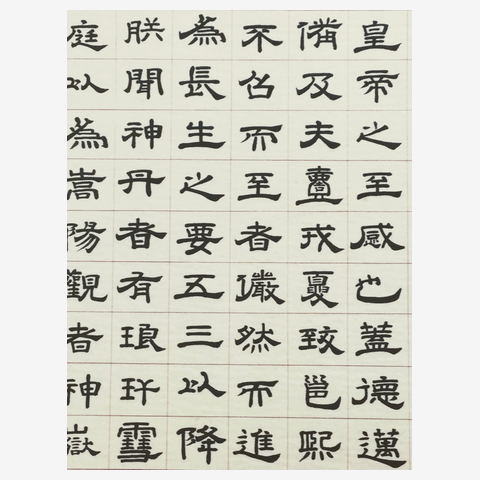 皇帝之至感也蓋德邁
備及夫壹戎夏致邕熙
不召而至者儼然而進
為長生之要五三以降
朕聞神丹者有琅玕雪
庭以為嵩陽觀者神嶽